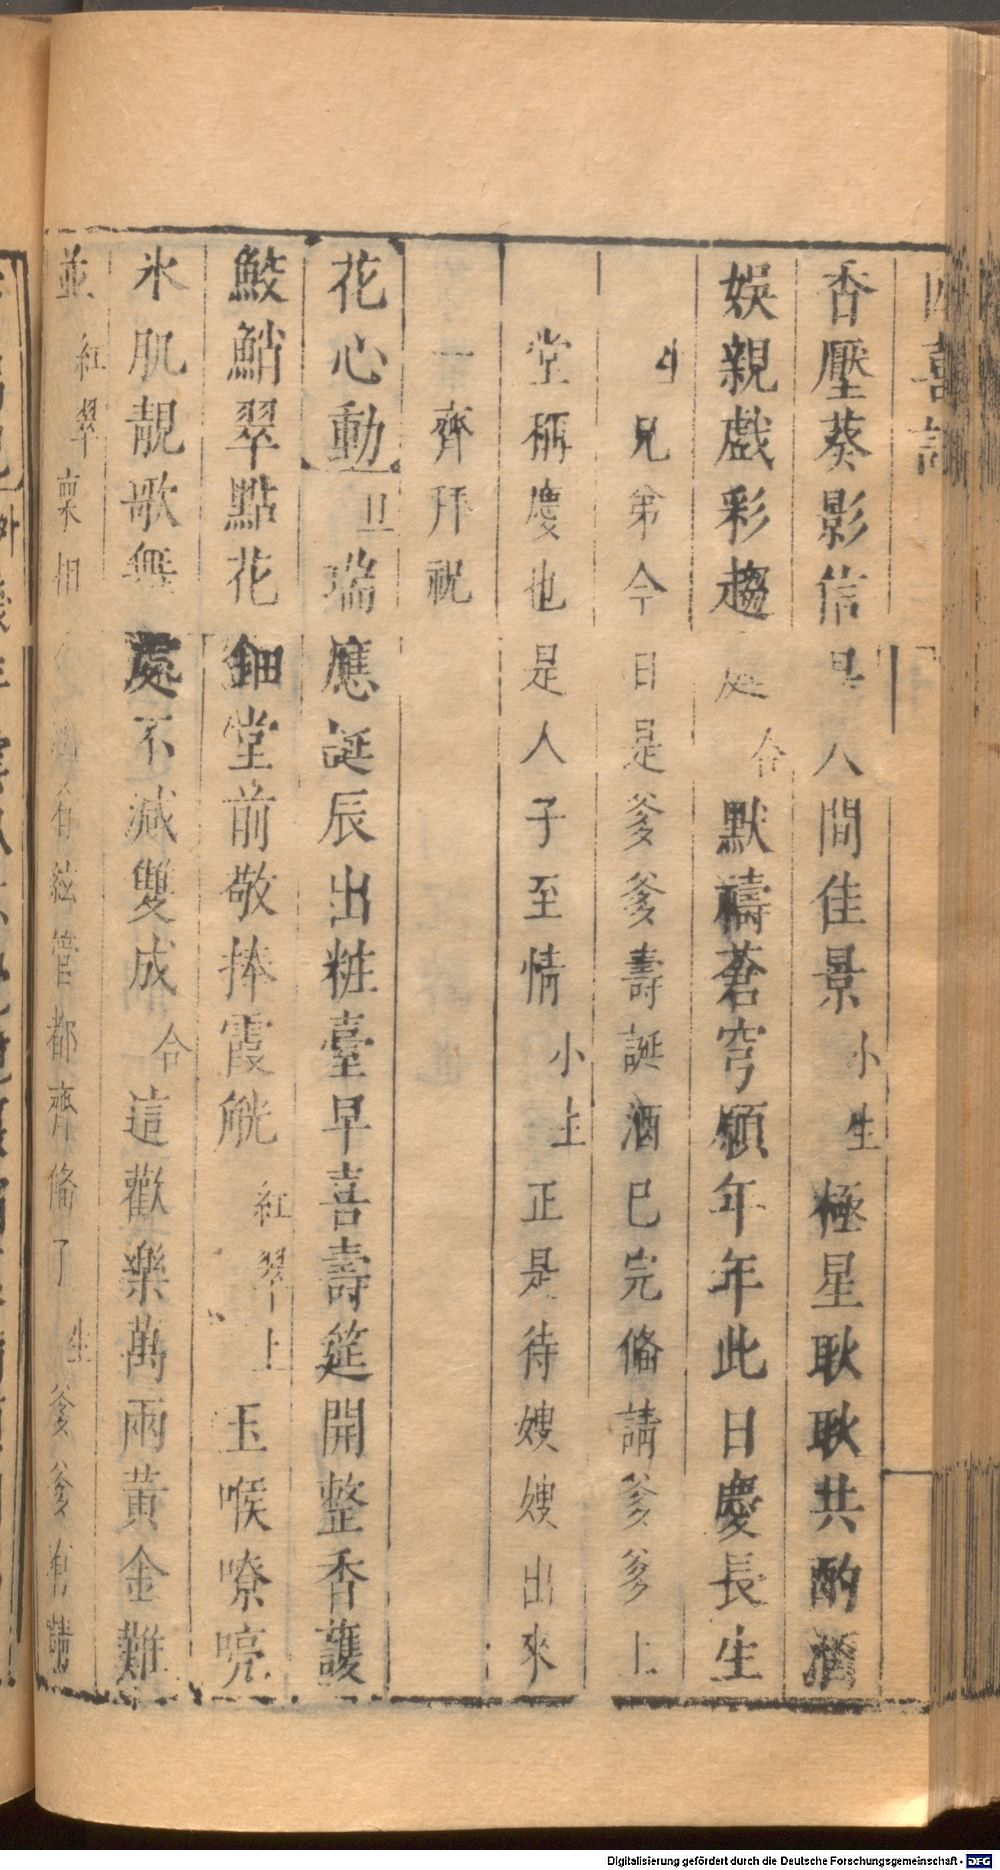 四喜記
香壓葵影信是人間佳景小生極星耿耿共酌酒
娛親戲彩趨庭合默禱蒼穹願年年此日慶長生
生兄弟今日是爹爹壽誕酒已完俻請爹爹上
堂稱慶也是人子至情小上正是待嫂嫂出來
一齊拜祝
花心動旦瑞應誕辰出粧臺早喜壽筵開整香護
鮫鮹翠點花鈿堂前敬捧霞觥紅翠上玉喉嘹喨
氷肌靚歌無處不減雙成合這歡樂萬兩黃金難
並紅翠稟相公酒肴絃管都齊俻了生爹爹有請
Digitalisierung gefördert durch die Deutsche Forschungsgemeinschaft - DFG